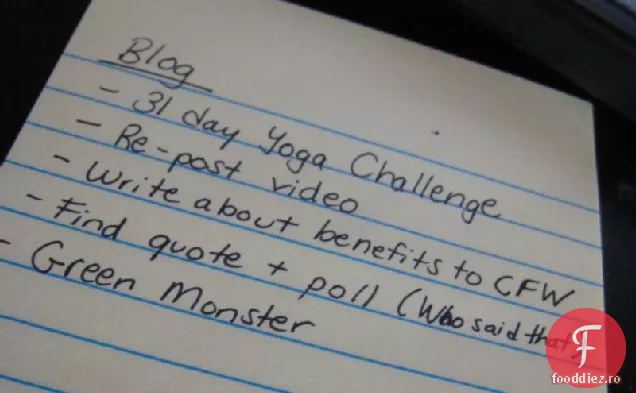 Blog
- 31 day Yoga Challenge
- Re-post video
- Write about benefits to CFW
- Find quote + poll (Who said that)
- Green Monster
fooddiez.ro